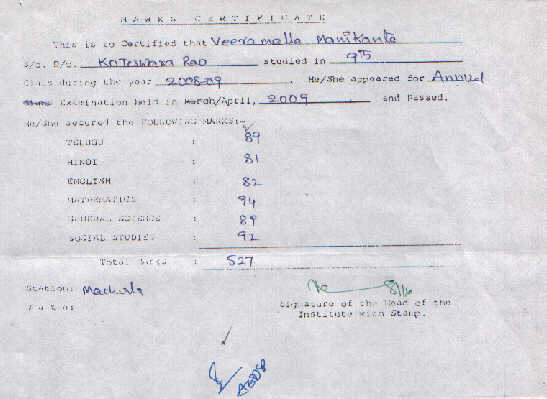 MARKS CERTIFICATE
This is to Certified that Veeramalla Manikanta
S/o. D/o. Koteswara Rao studied in 9th
Class during the year 2008-09 . He/She appeared for Annual
Examination held in March/April, 2009 and Passed.
He/She secured the FOLLOWING MARKS:-
TELUGU : 89
HINDI : 81
ENGLISH : 82
MATHEMATICS : 94
GENERAL SCIENCE : 89
SOCIAL STUDIES : 92
Total Marks : 527
Station:
Date:
Signature of the Head of the
Institute with Stamp.